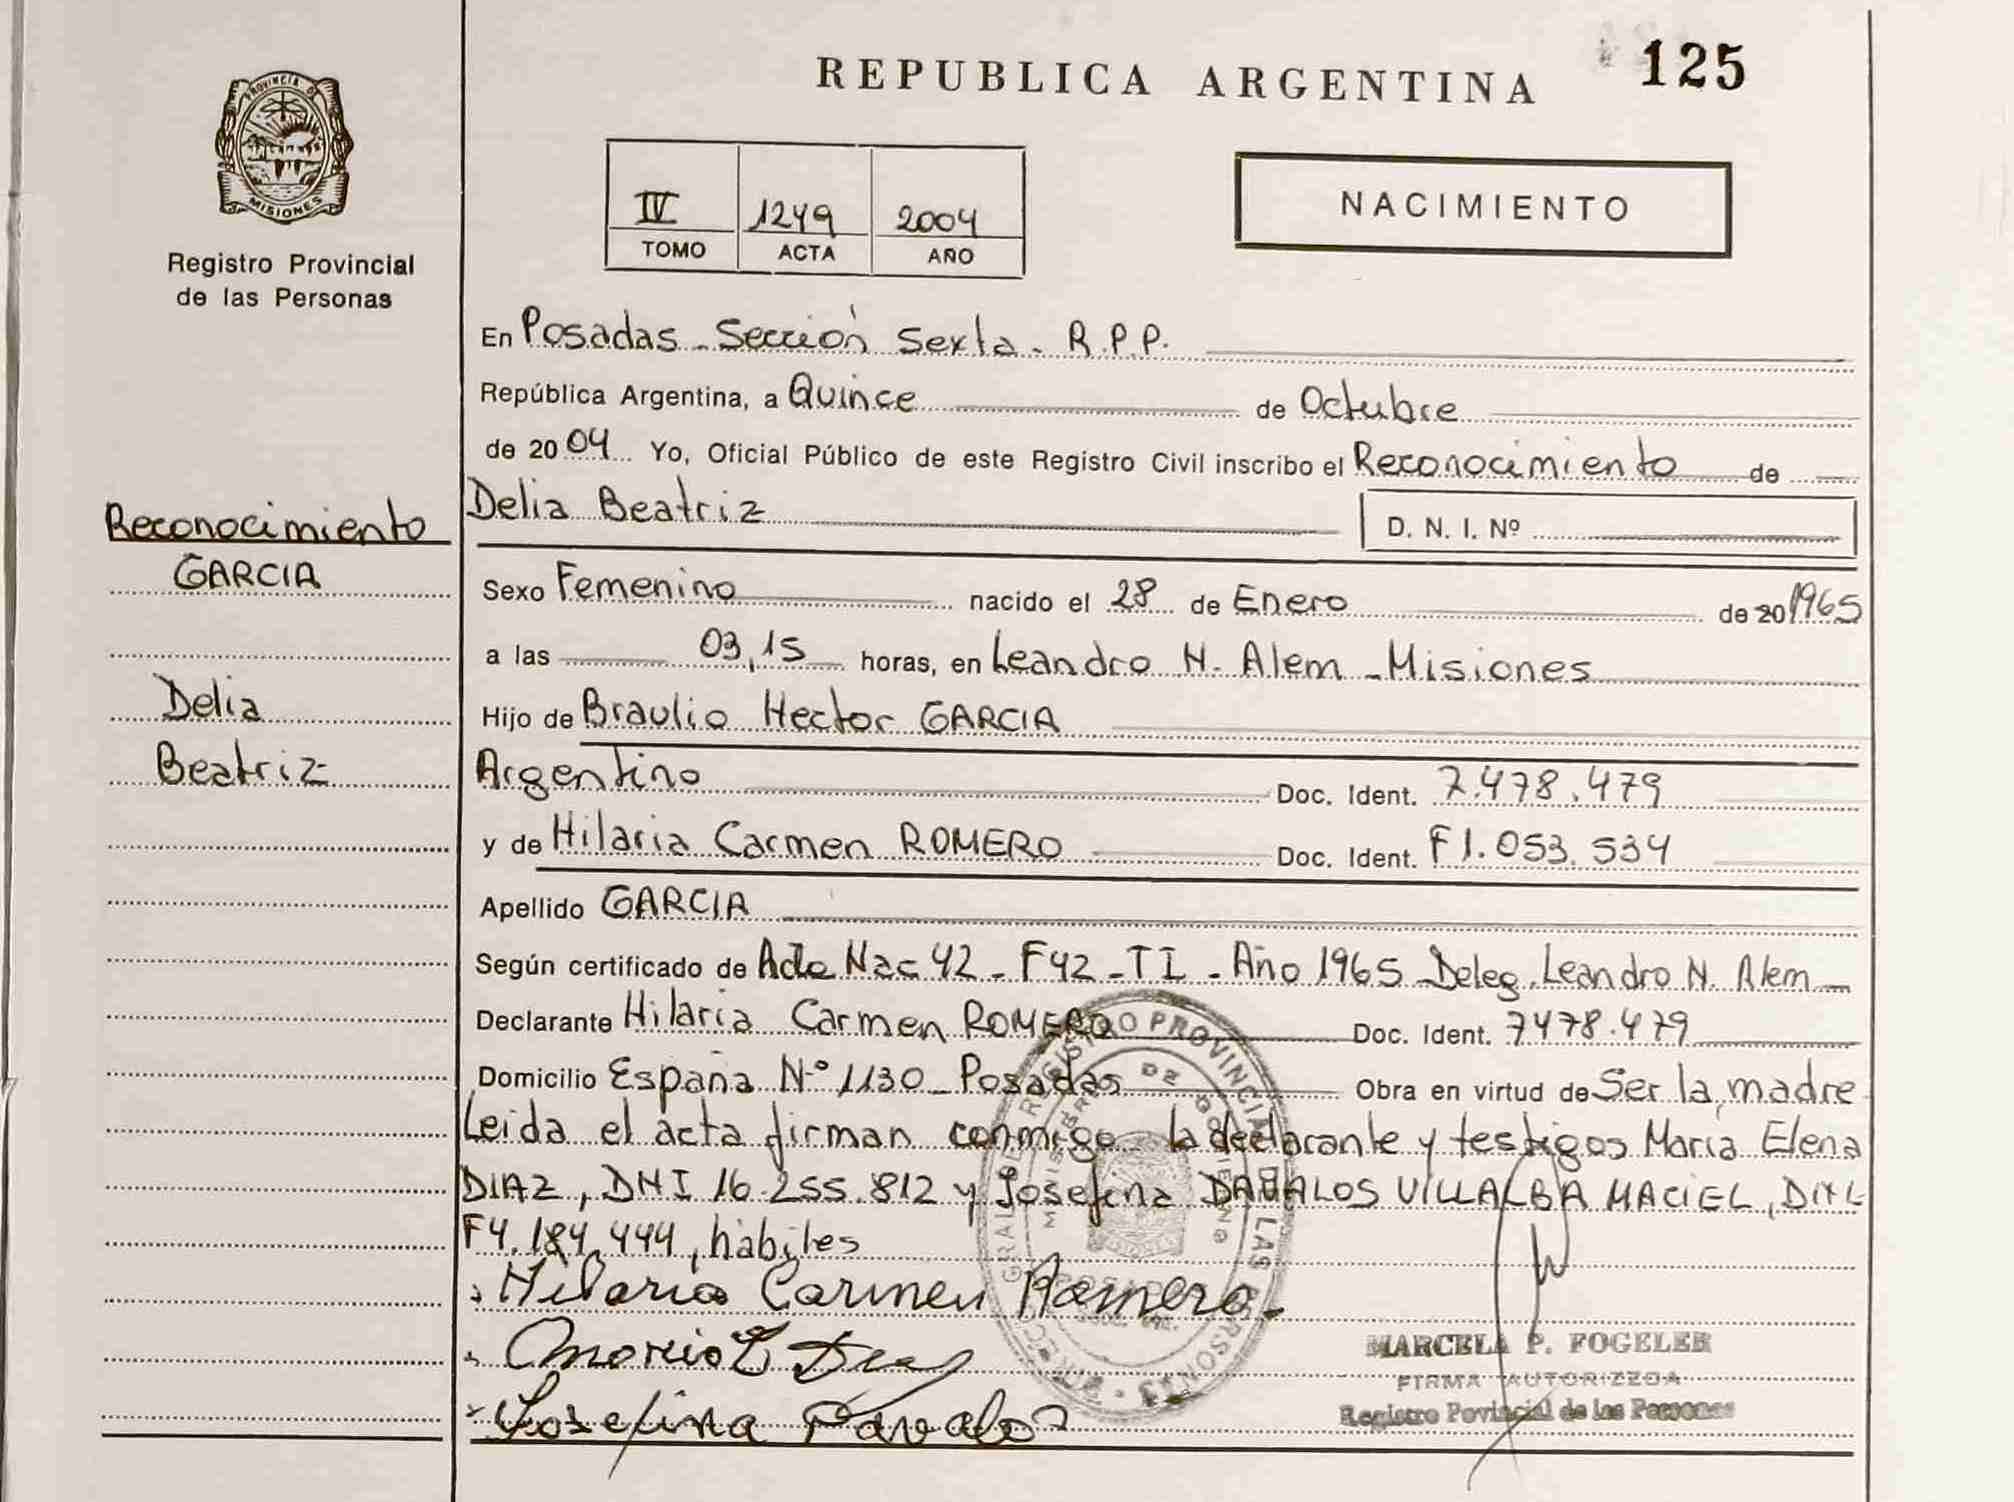 REPUBLICA ARGENTINA
125
PROVINCIA DE
MISIONES
Registro Provincial
de las Personas
IV 1249 2004
TOMO ACTA AÑO
NACIMIENTO
En Posadas - Sección Sexta - R.P.P.
República Argentina, a Quince de Octubre
de 2004 Yo, Oficial Público de este Registro Civil inscribo el Reconocimiento de
Delia Beatriz D. N. I. Nº
Reconocimiento
GARCIA
Delia
Beatriz
Sexo Femenino nacido el 28 de Enero de 20 1965
a las 03,15 horas, en Leandro N. Alem - Misiones
Hijo de Braulio Hector GARCIA
Argentino Doc. Ident. 7.478.479
y de Hilaria Carmen ROMERO Doc. Ident. F1.053.534
Apellido GARCIA
Según certificado de Nac 42 - F42 - TI - Año 1965 Deleg. Leandro N. Alem
Declarante Hilaria Carmen ROMERO Doc. Ident. 7478.479
Domicilio España Nº 1130 - Posadas Obra en virtud de Ser la madre
Leida el acta firman conmigo la declarante y testigos Maria Elena
DIAZ, DNI 16.255.812 y Josefina DABALOS VILLALBA MACIEL,
F4.184.444, hábiles
Hilaria Carmen Romero.
Josefina
MARCELA P. FOGELER
FIRMA AUTORIZZDA
Registro Povincial de las Personas